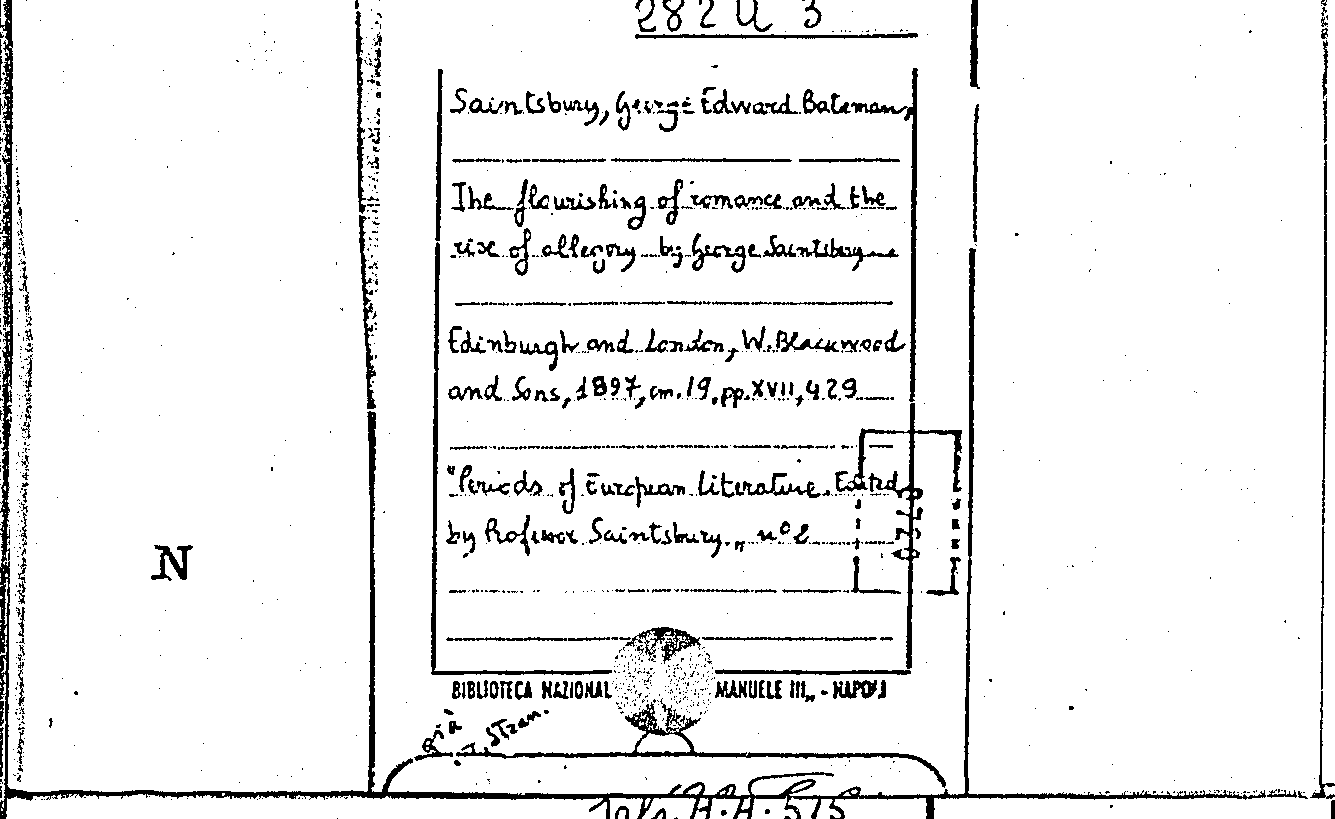 282 U 3
Saintsbury, George Edward Bateman,
The flourishing of romance and the
rise of allegory by George Saintsbury
Edinburgh and London, W. Blackwood
and Sons, 1897, cm. 19, pp. XVII, 429
"Periods of European Literature. Edited
by Professor Saintsbury.„ n° 2
N
BIBLIOTECA NAZIONAL MANUELE III„ - NAPOLI
già
Stran.